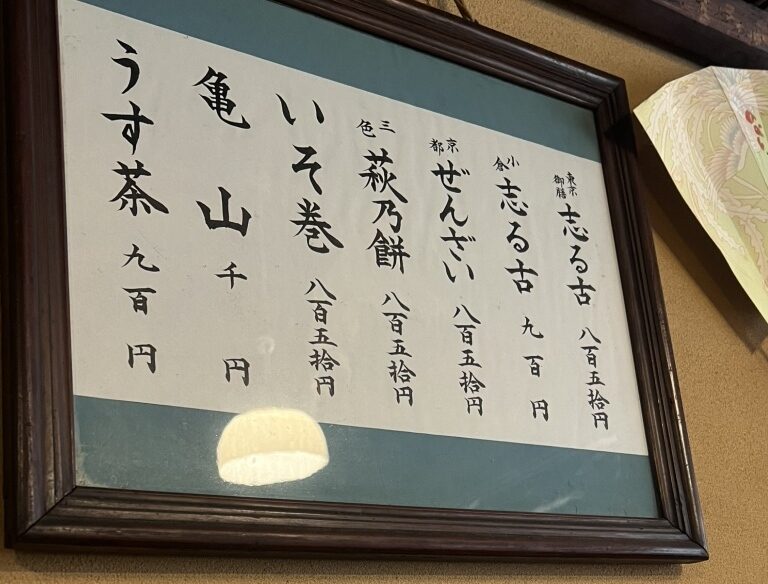 東京御膳 志る古 八百五拾円
小倉 志る古 九百円
京都 ぜんざい 八百五拾円
三色 萩乃餅 八百五拾円
いそ巻 八百五拾円
亀山 千円
うす茶 九百円